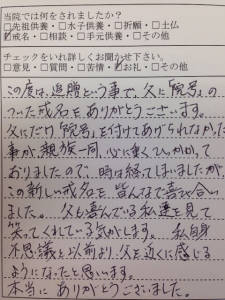 当院では何をされましたか？
□先祖供養・□水子供養・□祈願・□土仏
☑戒名・□相談・□手元供養・□その他
チェックをいれ詳しくお聞かせ下さい。
□意見・□質問・□苦情・☑お礼・□その他
この度は、追贈という事で、父に「院号」の
ついた戒名をありがとうございます。
父にだけ「院号」を付けてあげられなかった
事が、親族一同、心に重くひっかかって
おりましたので、時は経てしまいましたが
この新しい戒名を皆んなで喜び合い
ました。父も喜んでいる私達を見て
笑ってくれている気がします。私自身
不思議と以前より、父を近くに感じる
ようになったと思います。
本当にありがとうございました。